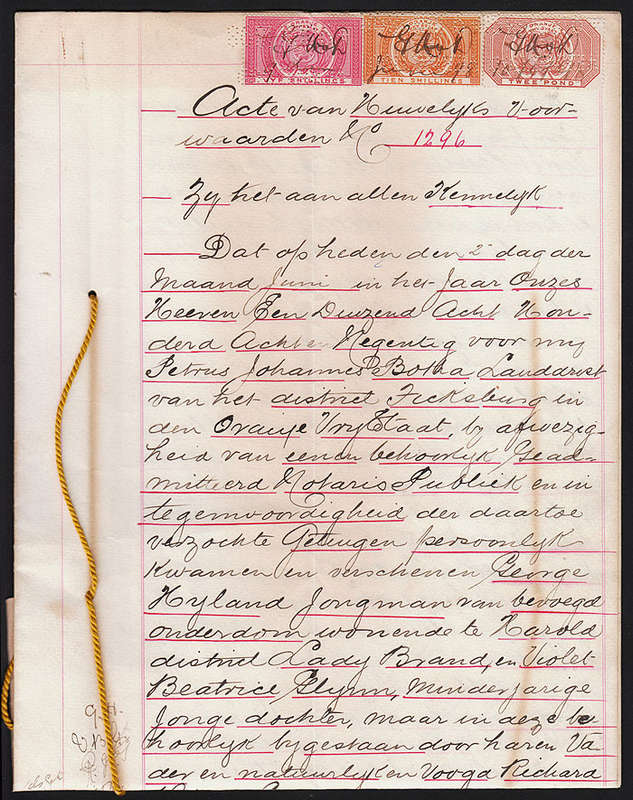 VYF SHILLINGS
TIEN SHILLINGS
TWEE POND
Acte van Huwelyks Voor-
waarden No 1296
Zy het aan allen Kennelyk
Dat op heden den 2e dag der
Maand Juni in het Jaar Onzes
Heeren Een Duizend Acht Hon-
derd Acht en Negentig voor my
Petrus Johannes Botha Landdrost
van het district Ficksburg in
den Oranje Vrystaat, by afwezig-
heid van eenen behoorlyk Gead-
mitteerd Notaris Publiek en in
tegenwoordigheid der daartoe
verzochte Getuigen persoonlyk
Kwamen en verschenen George
Hyland Jongman van bevoegd
onderdom wonende te Harold
district Lady Brand, en Violet
Beatrice Glynn, Minderjarige
Jonge dochter, maar in deze be
hoorlyk bygestaan door haren Va-
der en natuurlyken Voogd Richard
G.H.